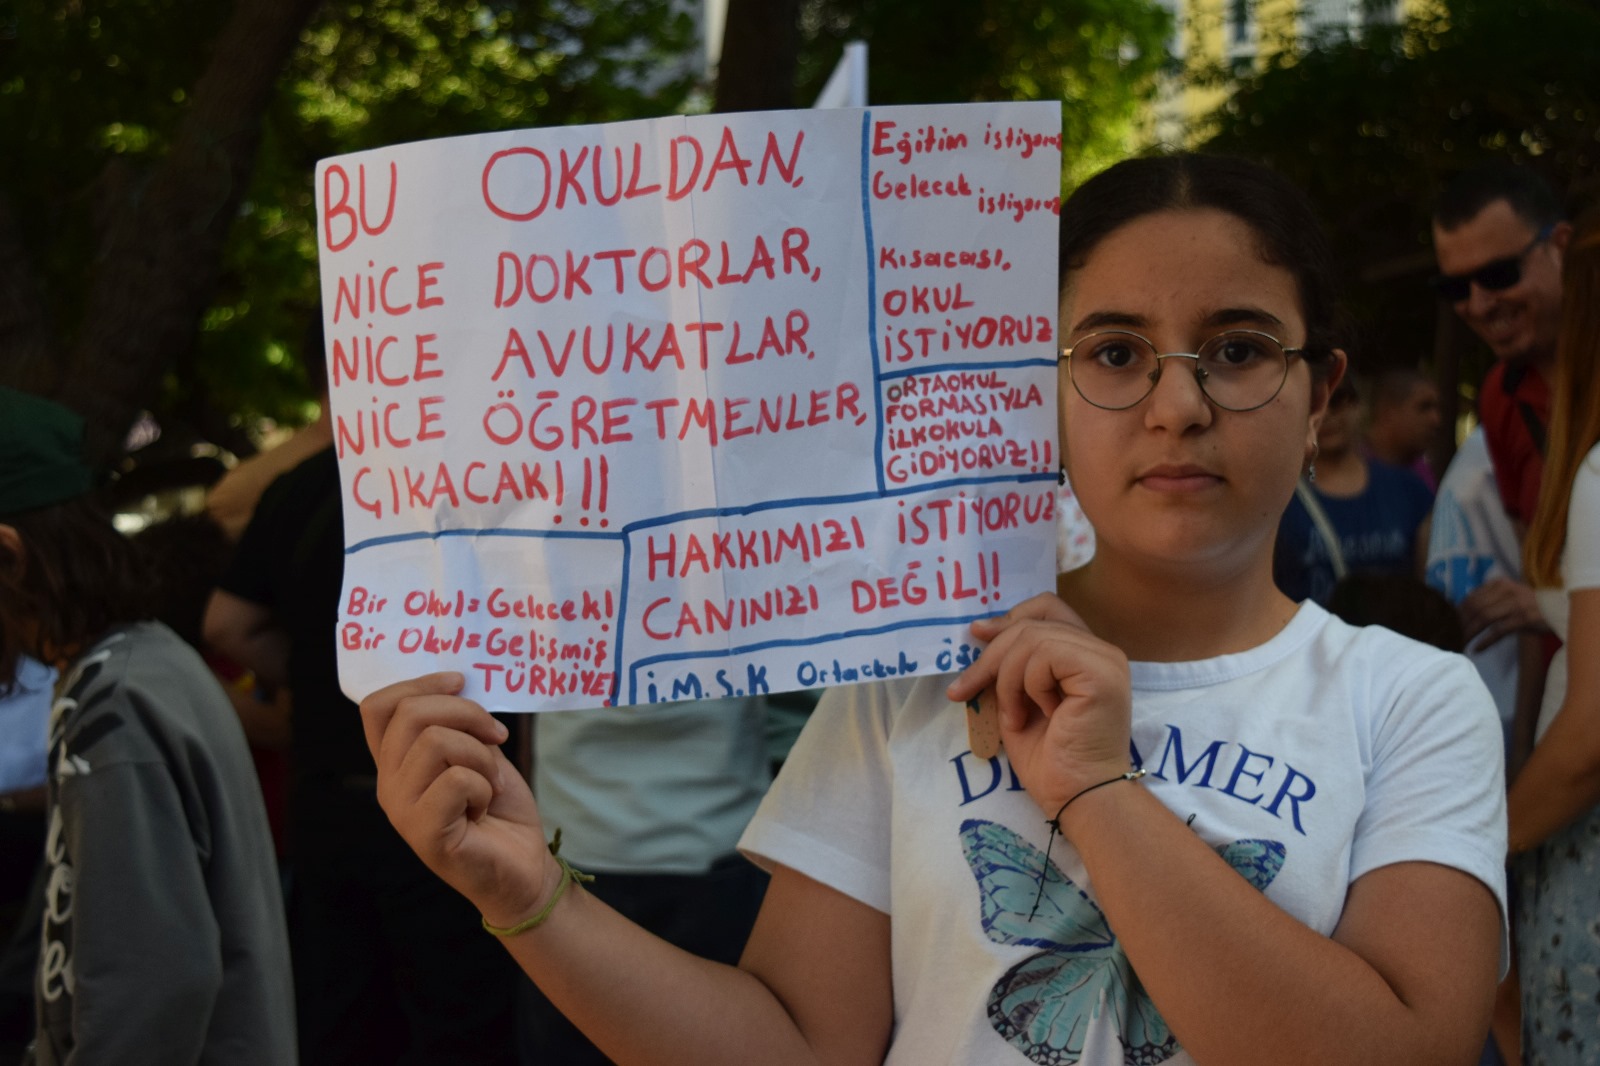 BU OKULDAN,
NİCE DOKTORLAR,
NİCE AVUKATLAR,
NİCE ÖĞRETMENLER,
ÇIKACAK!!!
Eğitim istiyoruz
Gelecek istiyoruz
Kısacası,
OKUL
İSTİYORUZ
ORTAOKUL
FORMASIYLA
İLKOKULA
GİDİYORUZ!!
HAKKIMIZI İSTİYORUZ
CANINIZI DEĞİL!!
Bir Okul=Gelecek!
Bir Okul=Gelişmiş
TÜRKİYE!
İ.M.S.K Ortaokulu
DREAMER